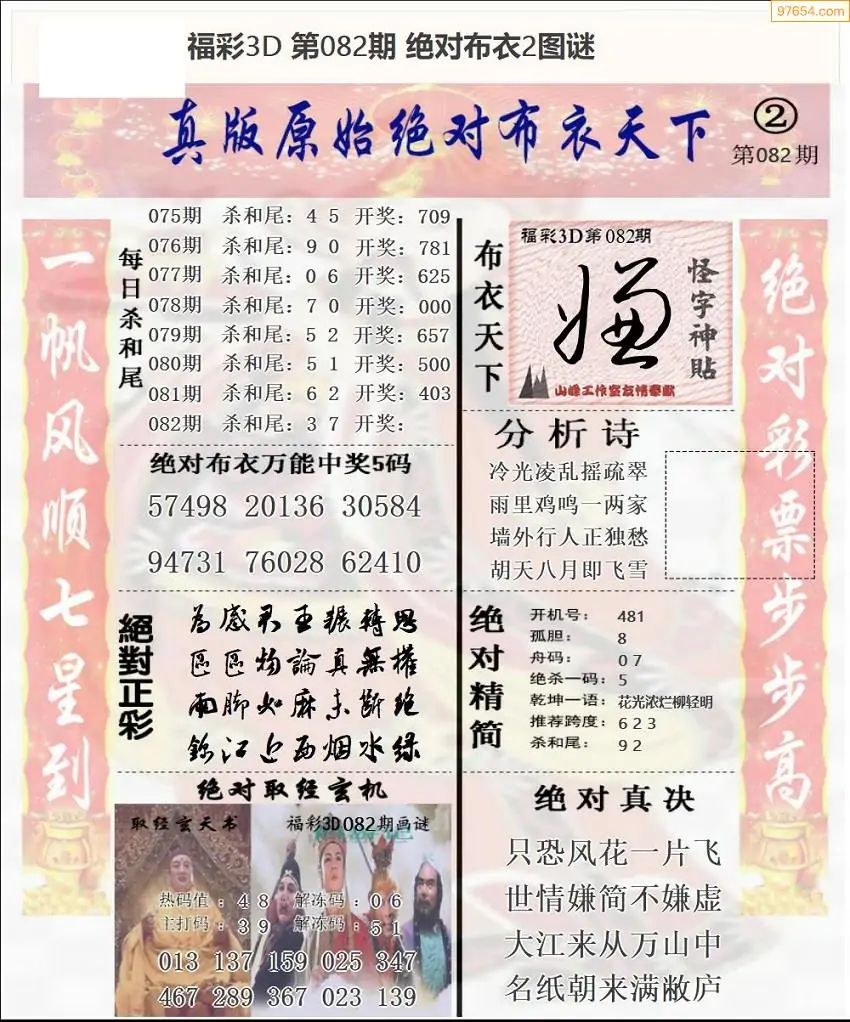 97654.com
福彩3D 第082期 绝对布衣2图谜
真版原始绝对布衣天下
②
第082期
一帆风顺七星到
每日杀和尾
075期 杀和尾：4 5 开奖：709
076期 杀和尾：9 0 开奖：781
077期 杀和尾：0 6 开奖：625
078期 杀和尾：7 0 开奖：000
079期 杀和尾：5 2 开奖：657
080期 杀和尾：5 1 开奖：500
081期 杀和尾：6 2 开奖：403
082期 杀和尾：3 7 开奖：
绝对布衣万能中奖5码
57498 20136 30584
94731 76028 62410
絕對正彩
为感君王辗转思
區區物論真無權
雨脚如麻未断绝
錦江近西烟水绿
绝对取经玄机
取经玄天书
福彩3D082期画谜
热码值：4 8 解冻码：0 6
主打码：3 9 解冻码：5 1
013 137 159 025 347
467 289 367 023 139
布衣天下
福彩3D第082期
嫌
怪字神貼
山峰工作室友情奉献
分析诗
冷光凌乱摇疏翠
雨里鸡鸣一两家
墙外行人正独愁
胡天八月即飞雪
绝对精简
开机号：481
孤胆：8
舟码：0 7
绝杀一码：5
乾坤一语：花光浓烂柳轻明
推荐跨度：6 2 3
杀和尾：9 2
绝对真决
只恐风花一片飞
世情嫌简不嫌虚
大江来从万山中
名纸朝来满敝庐
绝对彩票步步高